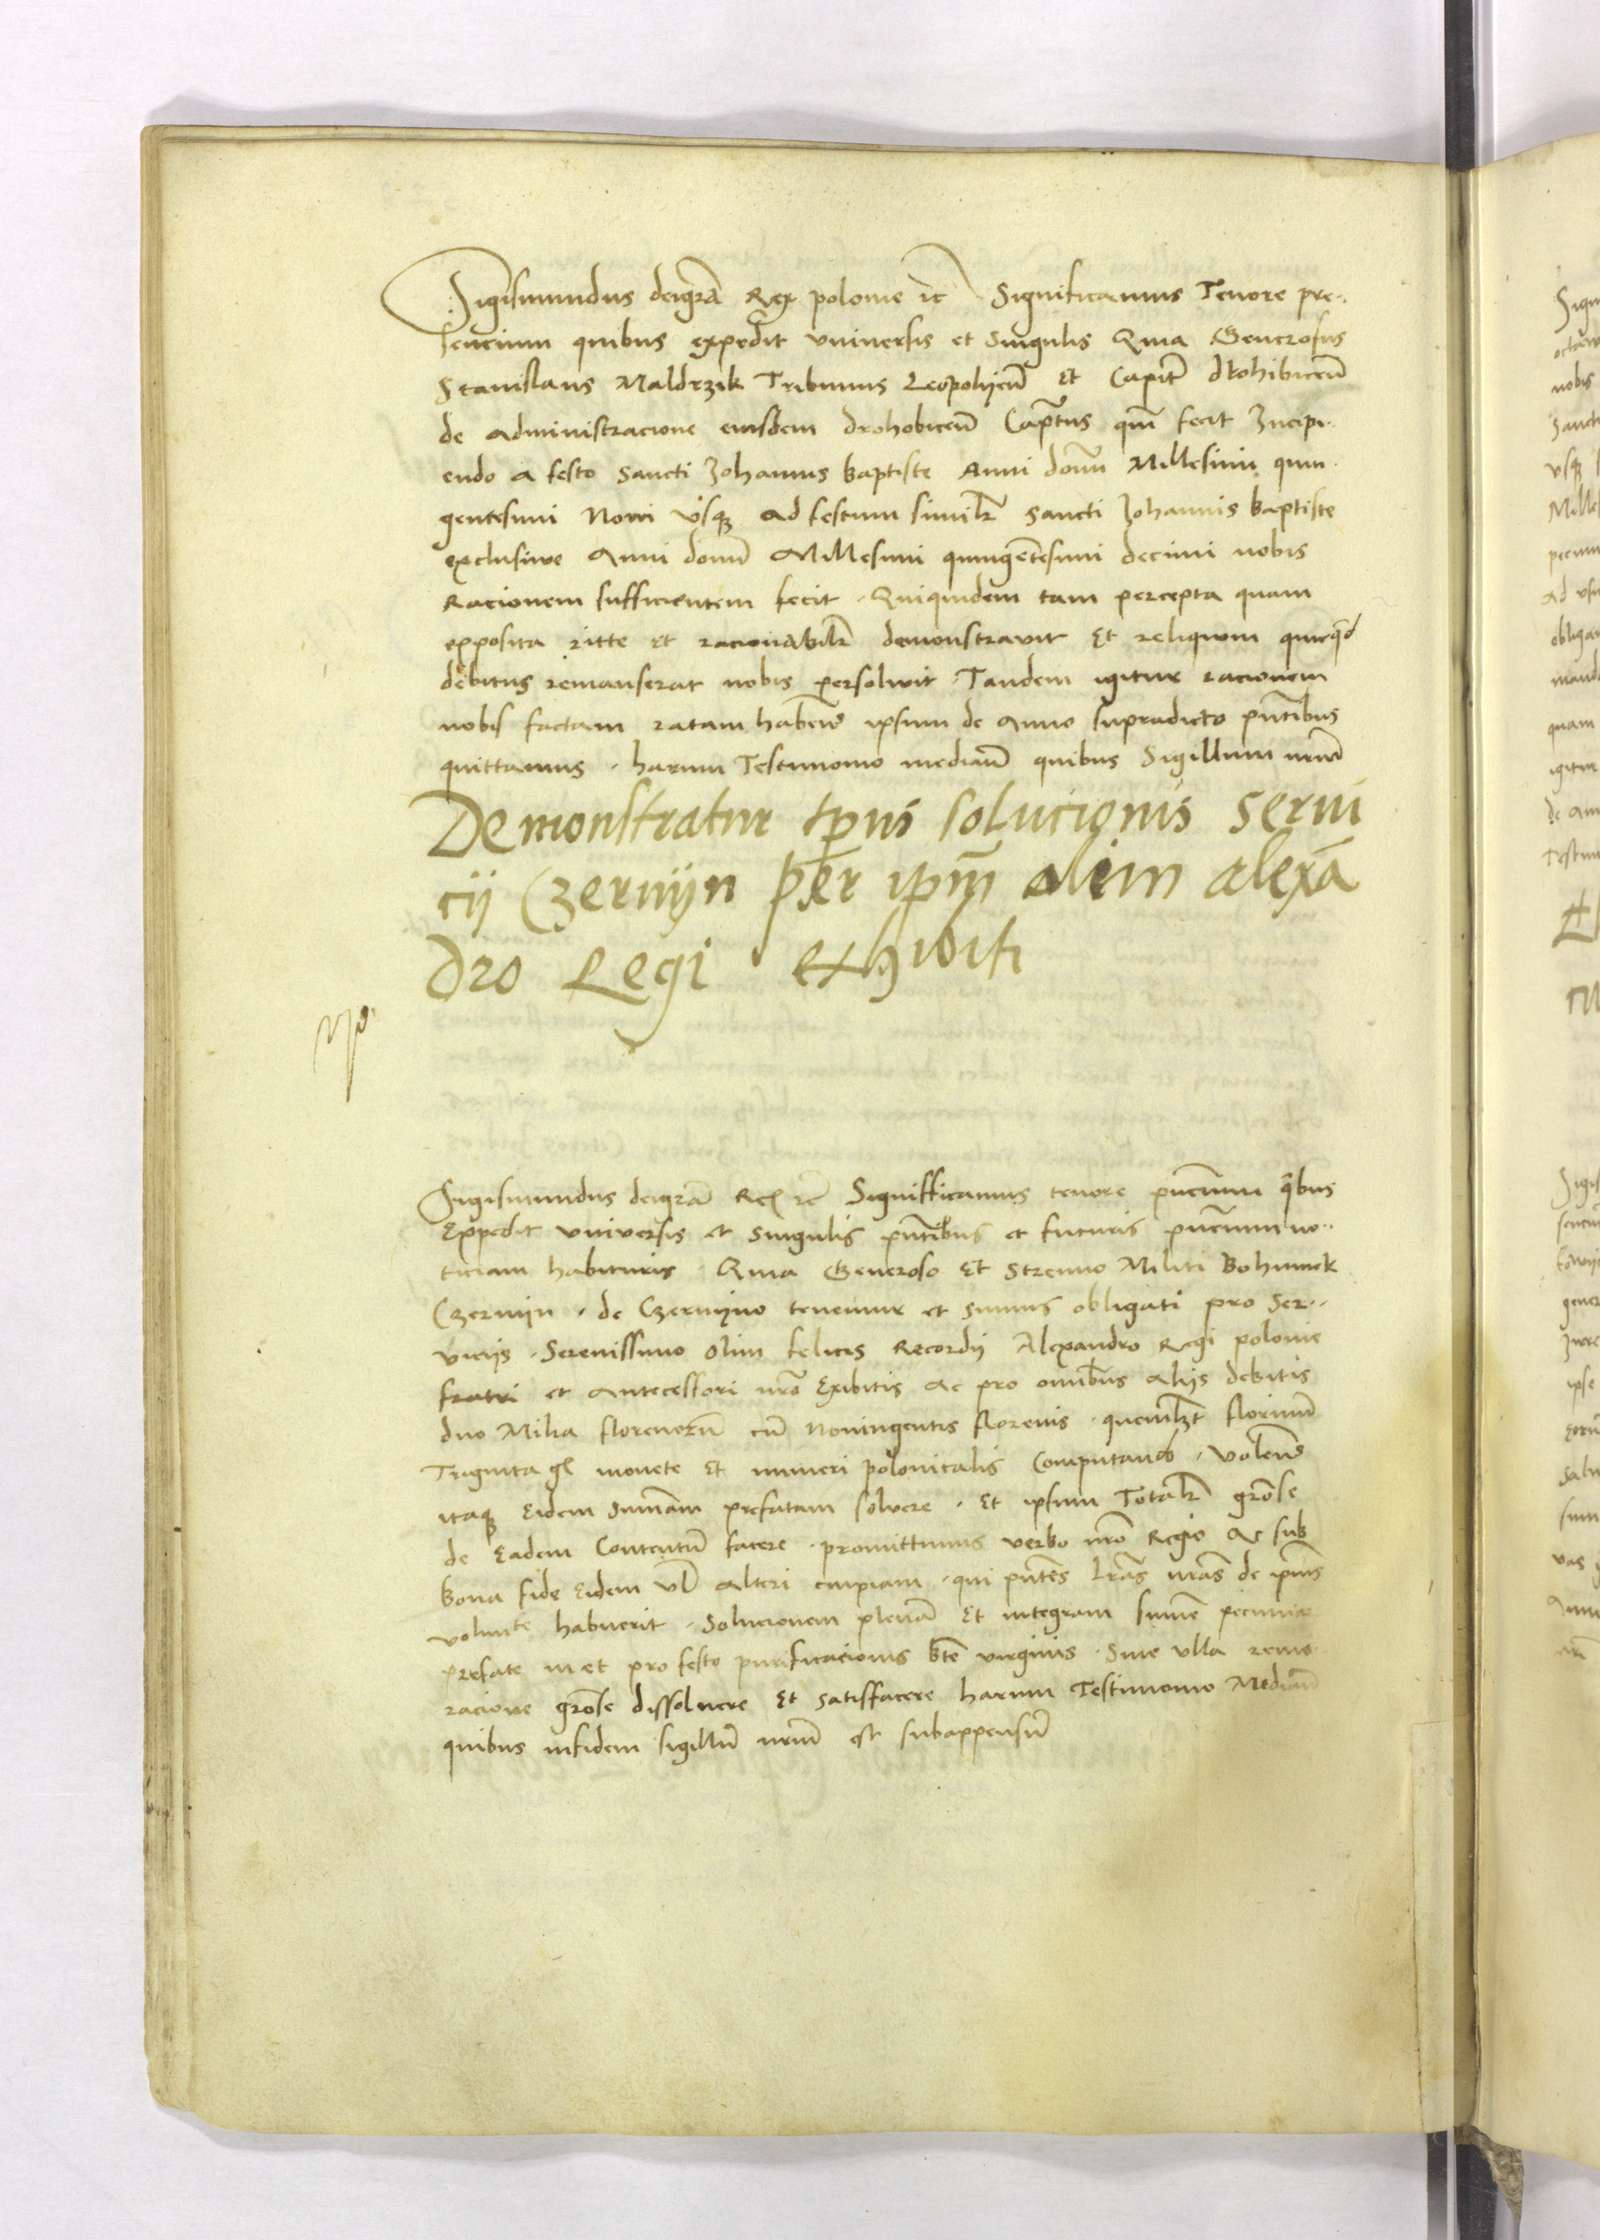 Sigismundus deigrã Rex polonie ꝛc Significamus Tenore pre-
sencium quibus expedit vniuersis et singulis Quia Generosus
Stanislaus Maldrzik Tribunus Leopolien̄ Et Capit̄ drohibicen̄
de administracione eiusdem drohobicen̄ Cap̄tus qm̄ fecit Incipi-
endo a festo sancti Johannis baptiste Anni domī Millesimi quin-
gentesimi Noni vsqꝫ ad festum similr̄ sancti Johannis baptiste
exclusiue Anni domī Millesimi quingẽtesimi decimi nobis
Racionem sufficientem fecit . Quiquidem tam percepta quam
exposita ritte et racionabilr̄ demonstravit Et reliquom quicq̄d
debitus remanserat nobis persolvit . Tandem igitur racionem
nobis factam ratam habeñ ipsum de Anno supradicto pn̄tibus
quittamus . harum Testimonio median̄ quibus Sigillum nrm̄
Demonstratur tp̄us solucionis serui
cij Czernijn per ip̄m olim alexã
dro Regi exhibiti
Sigismundus deigrã Rex ꝛc Signifficamus tenore pñcium q̄bus
Expedit vniversis et singulis pn̄tibus et futuris pñcium no-
ticiam habituris . Quia Generoso Et Strenuo Militi Bohunek
Czernijn . de Czernijno tenemur et sumus obligati pro Ser-
vicijs . Serenissimo olim felicis Recordij Alexandro Regi polonie
fratri et antecessori nrō Exibitis ac pro omībus alijs debitis
duo Milia florenorũ cũ Noningentis florenis . quemlꝫt florenum̄
Triginta gꝉ monete Et numeri polonicalis Computando . Volen̄s
itaqꝫ Eidem sum̄am prefatam solvere . Et ipsum Totalr̄ grõse
de Eadem Contentũ facere . promittimus verbo nrō Regio Ac sub
bona fide Eidem vl̄ alteri cuipiam . qui pn̄tes lrãs nrãs de ip̄ius
volunte habuerit . Solucionem plenã Et integram sum̄e pecunie
prefate in et pro festo purificacionis btẽ virginis . Sine vlla remo-
racione grõse dissoluere Et satisfacere harum Testimonio Median̄
quibus infidem sigillũ nrm̄ est subappensũ